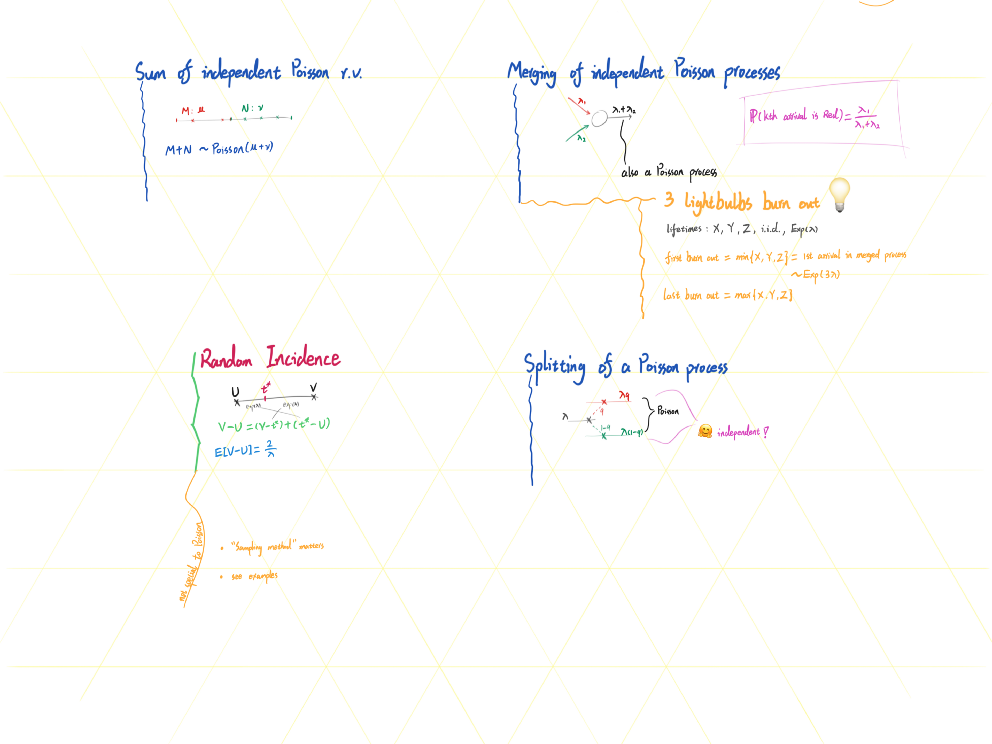 Sum of independent Poisson r.v.
M: μ
N: ν
M+N ~ Poisson(μ+ν)
Merging of independent Poisson processes
λ₁
λ₂
λ₁+λ₂
also a Poisson process
ℙ(kth arrival is Red) = λ₁/(λ₁+λ₂)
3 lightbulbs burn out
lifetimes: X, Y, Z, i.i.d., Exp(λ)
first burn out = min{X,Y,Z} = 1st arrival in merged process
~Exp(3λ)
last burn out = max{X,Y,Z}
Random Incidence
U t* V
exp(λ) exp(λ)
V-U = (V-t*)+(t*-U)
E[V-U] = 2/λ
not special to Poisson
• "Sampling method" matters
• see examples
Splitting of a Poisson process
λ
q
λq
1-q
λ(1-q)
Poisson
independent!